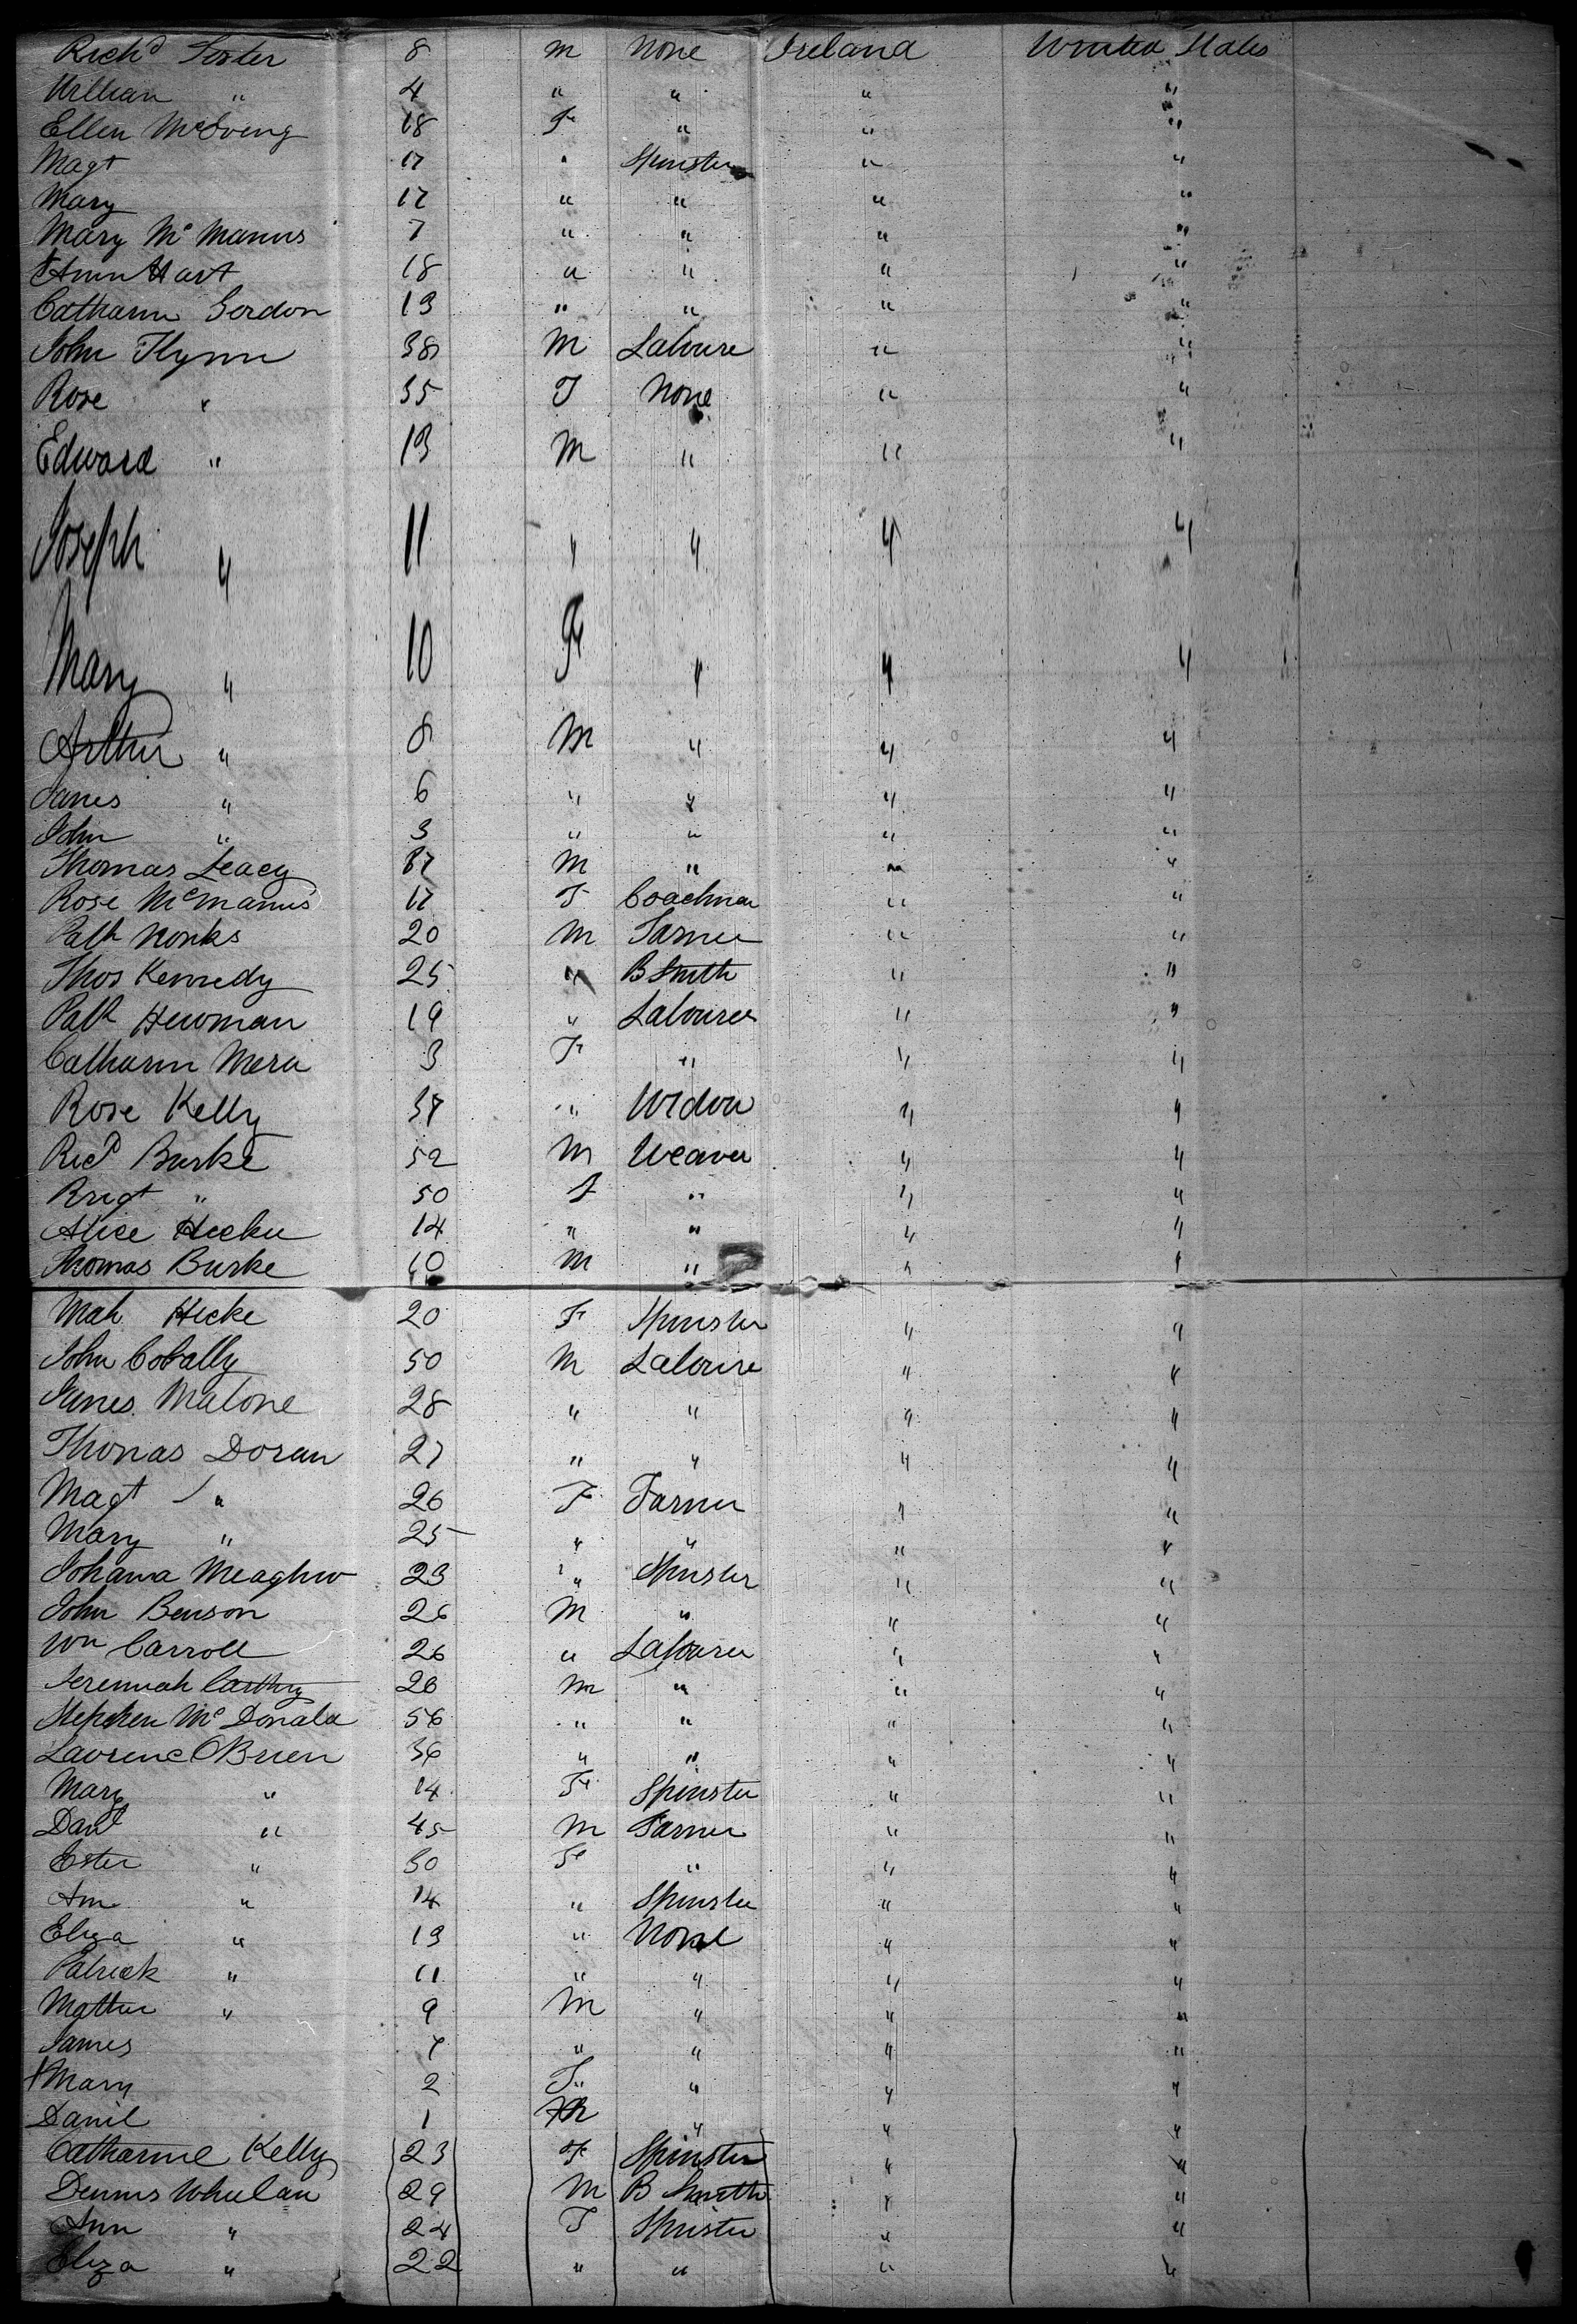 Richd Foster 8 m None Ireland United States
William " 4 " " " "
Ellen McLoving 18 F " " "
Magt 17 " Spinster " "
Mary 17 " " " "
Mary Mc Manus 7 " " " "
Ann Hart 18 " " " "
Catharin Gordon 13 " " " "
John Flynn 38 M Laboure " "
Rose " 35 F None " "
Edward " 13 M " " "
Joseph " 11 " " " "
Mary " 10 F " " "
Arthur " 8 M " " "
James " 6 " " " "
John " 3 " " " "
Thomas Leacy 37 M " " "
Rose McManus 17 F Coachman " "
Patk Monks 20 M Farmer " "
Thos Kennedy 25 " B Smith " "
Patk Newman 19 " Labourer " "
Catharin Mera 3 F " " "
Rose Kelly 37 " Widow " "
Ricd Burke 52 M Weaver " "
Brigt " 50 F " " "
Alice Hickie 14 " " " "
Thomas Burke 10 M " " "
Mah Hicke 20 F Spinster " "
John Cobally 50 M Laboure " "
James Malone 28 " " " "
Thomas Doran 27 " " " "
Magt " 26 F Farmer " "
Mary " 25 " " " "
Johanna Meagher 23 " Spinster " "
John Benson 26 M " " "
Wm Carroll 26 " Labourer " "
Jeremiah Carthy 26 m " " "
Stephen Mc Donald 56 " " " "
Laurence OBrien 36 " " " "
Mary " 14 F Spinster " "
Danl " 45 M Farmer " "
Ester " 30 F " " "
Ann " 14 " Spinster " "
Eliza " 13 " None " "
Patrick " 11 " " " "
Mathew " 9 M " " "
James 7 " " " "
Mary 2 F " " "
Danil 1 M " " "
Catharine Kelly 23 F Spinster " "
Dennis Whelan 29 M B Smith " "
Ann " 24 F Spinster " "
Eliza " 22 " " " "